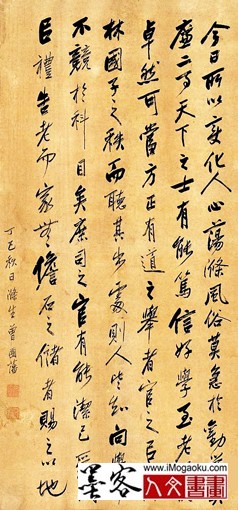 今日所以變化人心蕩滌風俗莫急於勸學
廉二事天下之士有能篤信好學至老
卓然可當方正有道之舉者官之以
林國子之秩而聽其出處則人皆知向學
不競於科目矣庶司之官有能潔己愛
以禮告老而家無儋石之儲者賜之以地
丁巳秋日滌生曾國藩
www.iMogaoku.com
墨客人文書畫